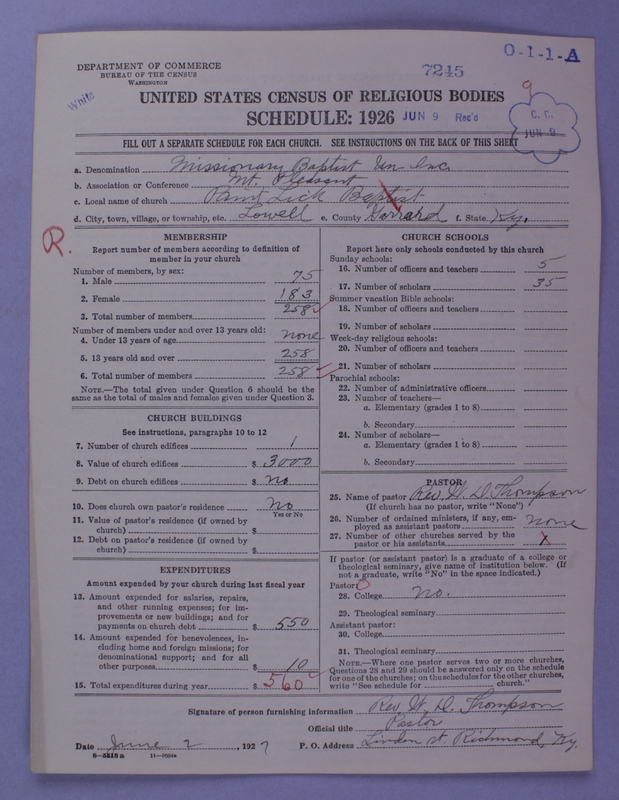 DEPARTMENT OF COMMERCE
BUREAU OF THE CENSUS
WASHINGTON
7245
O-1-1-A
White
9
UNITED STATES CENSUS OF RELIGIOUS BODIES
SCHEDULE: 1926 JUN 9 Rec'd
C. C.
JUN 9
FILL OUT A SEPARATE SCHEDULE FOR EACH CHURCH. SEE INSTRUCTIONS ON THE BACK OF THIS SHEET
a. Denomination Missionary Baptist Un Inc.
b. Association or Conference Mt. Pleasant
c. Local name of church Paint Lick Baptist
d. City, town, village, or township, etc. Lowell e. County Garrard f. State Ky.
R.
MEMBERSHIP
Report number of members according to definition of
member in your church
Number of members, by sex:
1. Male 75
2. Female 183
3. Total number of members 258
Number of members under and over 13 years old:
4. Under 13 years of age none
5. 13 years old and over 258
6. Total number of members 258
NOTE.—The total given under Question 6 should be the
same as the total of males and females given under Question 3.
CHURCH BUILDINGS
See instructions, paragraphs 10 to 12
7. Number of church edifices 1
8. Value of church edifices $ 3000
9. Debt on church edifices $ no
10. Does church own pastor's residence no
Yes or No
11. Value of pastor's residence (if owned by
church) $
12. Debt on pastor's residence (if owned by
church) $
EXPENDITURES
Amount expended by your church during last fiscal year
13. Amount expended for salaries, repairs,
and other running expenses; for im-
provements or new buildings; and for
payments on church debt $ 550
14. Amount expended for benevolences, in-
cluding home and foreign missions; for
denominational support; and for all
other purposes 10
15. Total expenditures during year $ 560
CHURCH SCHOOLS
Report here only schools conducted by this church
Sunday schools:
16. Number of officers and teachers 5
17. Number of scholars 35
Summer vacation Bible schools:
18. Number of officers and teachers
19. Number of scholars
Week-day religious schools:
20. Number of officers and teachers
21. Number of scholars
Parochial schools:
22. Number of administrative officers
23. Number of teachers—
a. Elementary (grades 1 to 8)
b. Secondary
24. Number of scholars—
a. Elementary (grades 1 to 8)
b. Secondary
PASTOR
25. Name of pastor Rev. W. D. Thompson
(If church has no pastor, write "None")
26. Number of ordained ministers, if any, em-
ployed as assistant pastors none
27. Number of other churches served by the
pastor or his assistants X
If pastor (or assistant pastor) is a graduate of a college or
theological seminary, give name of institution below. (If
not a graduate, write "No" in the space indicated.)
Pastor: O
28. College no.
29. Theological seminary
Assistant pastor:
30. College
31. Theological seminary
NOTE.—Where one pastor serves two or more churches,
Questions 28 and 29 should be answered only on the schedule
for one of the churches; on the schedules for the other churches,
write "See schedule for church."
Signature of person furnishing information Rev. W. D. Thompson
Official title Pastor
Date June 2, 1927 P. O. Address Linden st. Richmond, Ky.
8-5518a